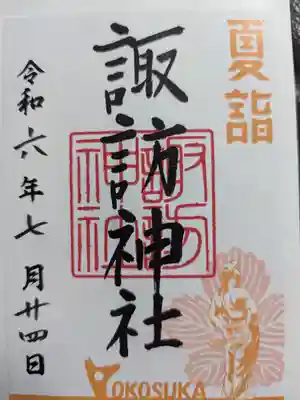 夏詣
諏訪神社
諏訪
神社
令和六年七月廿四日
YOKOSUKA